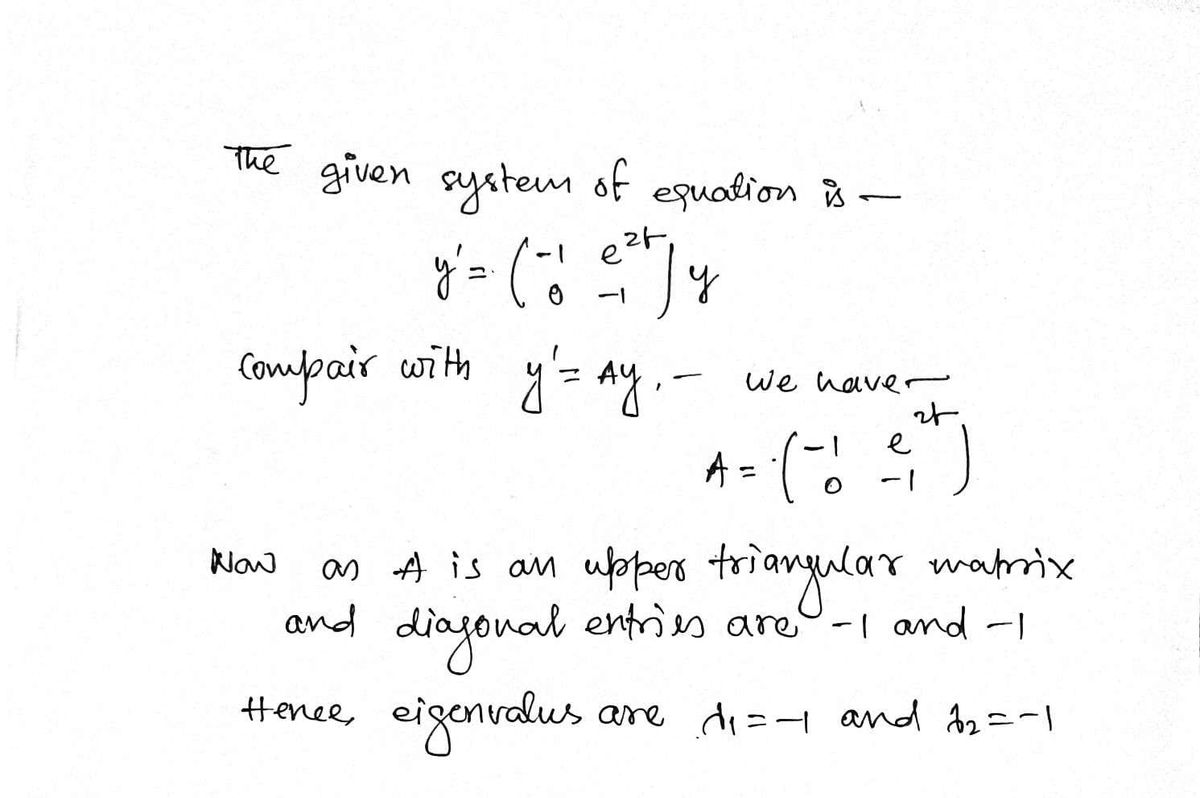 The given system of equation is —
y' = (-1 e^2t
0 -1) y
Compair with y' = Ay, - we have —
A = (-1 e^2t
0 -1)
Now as A is an upper triangular matrix
and diagonal entries are -1 and -1
Hence, eigenvalus are λ1 = -1 and λ2 = -1